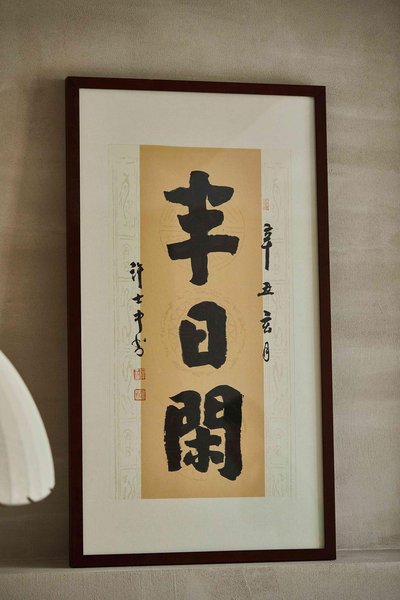 辛丑玄月
半日閑
許士中書